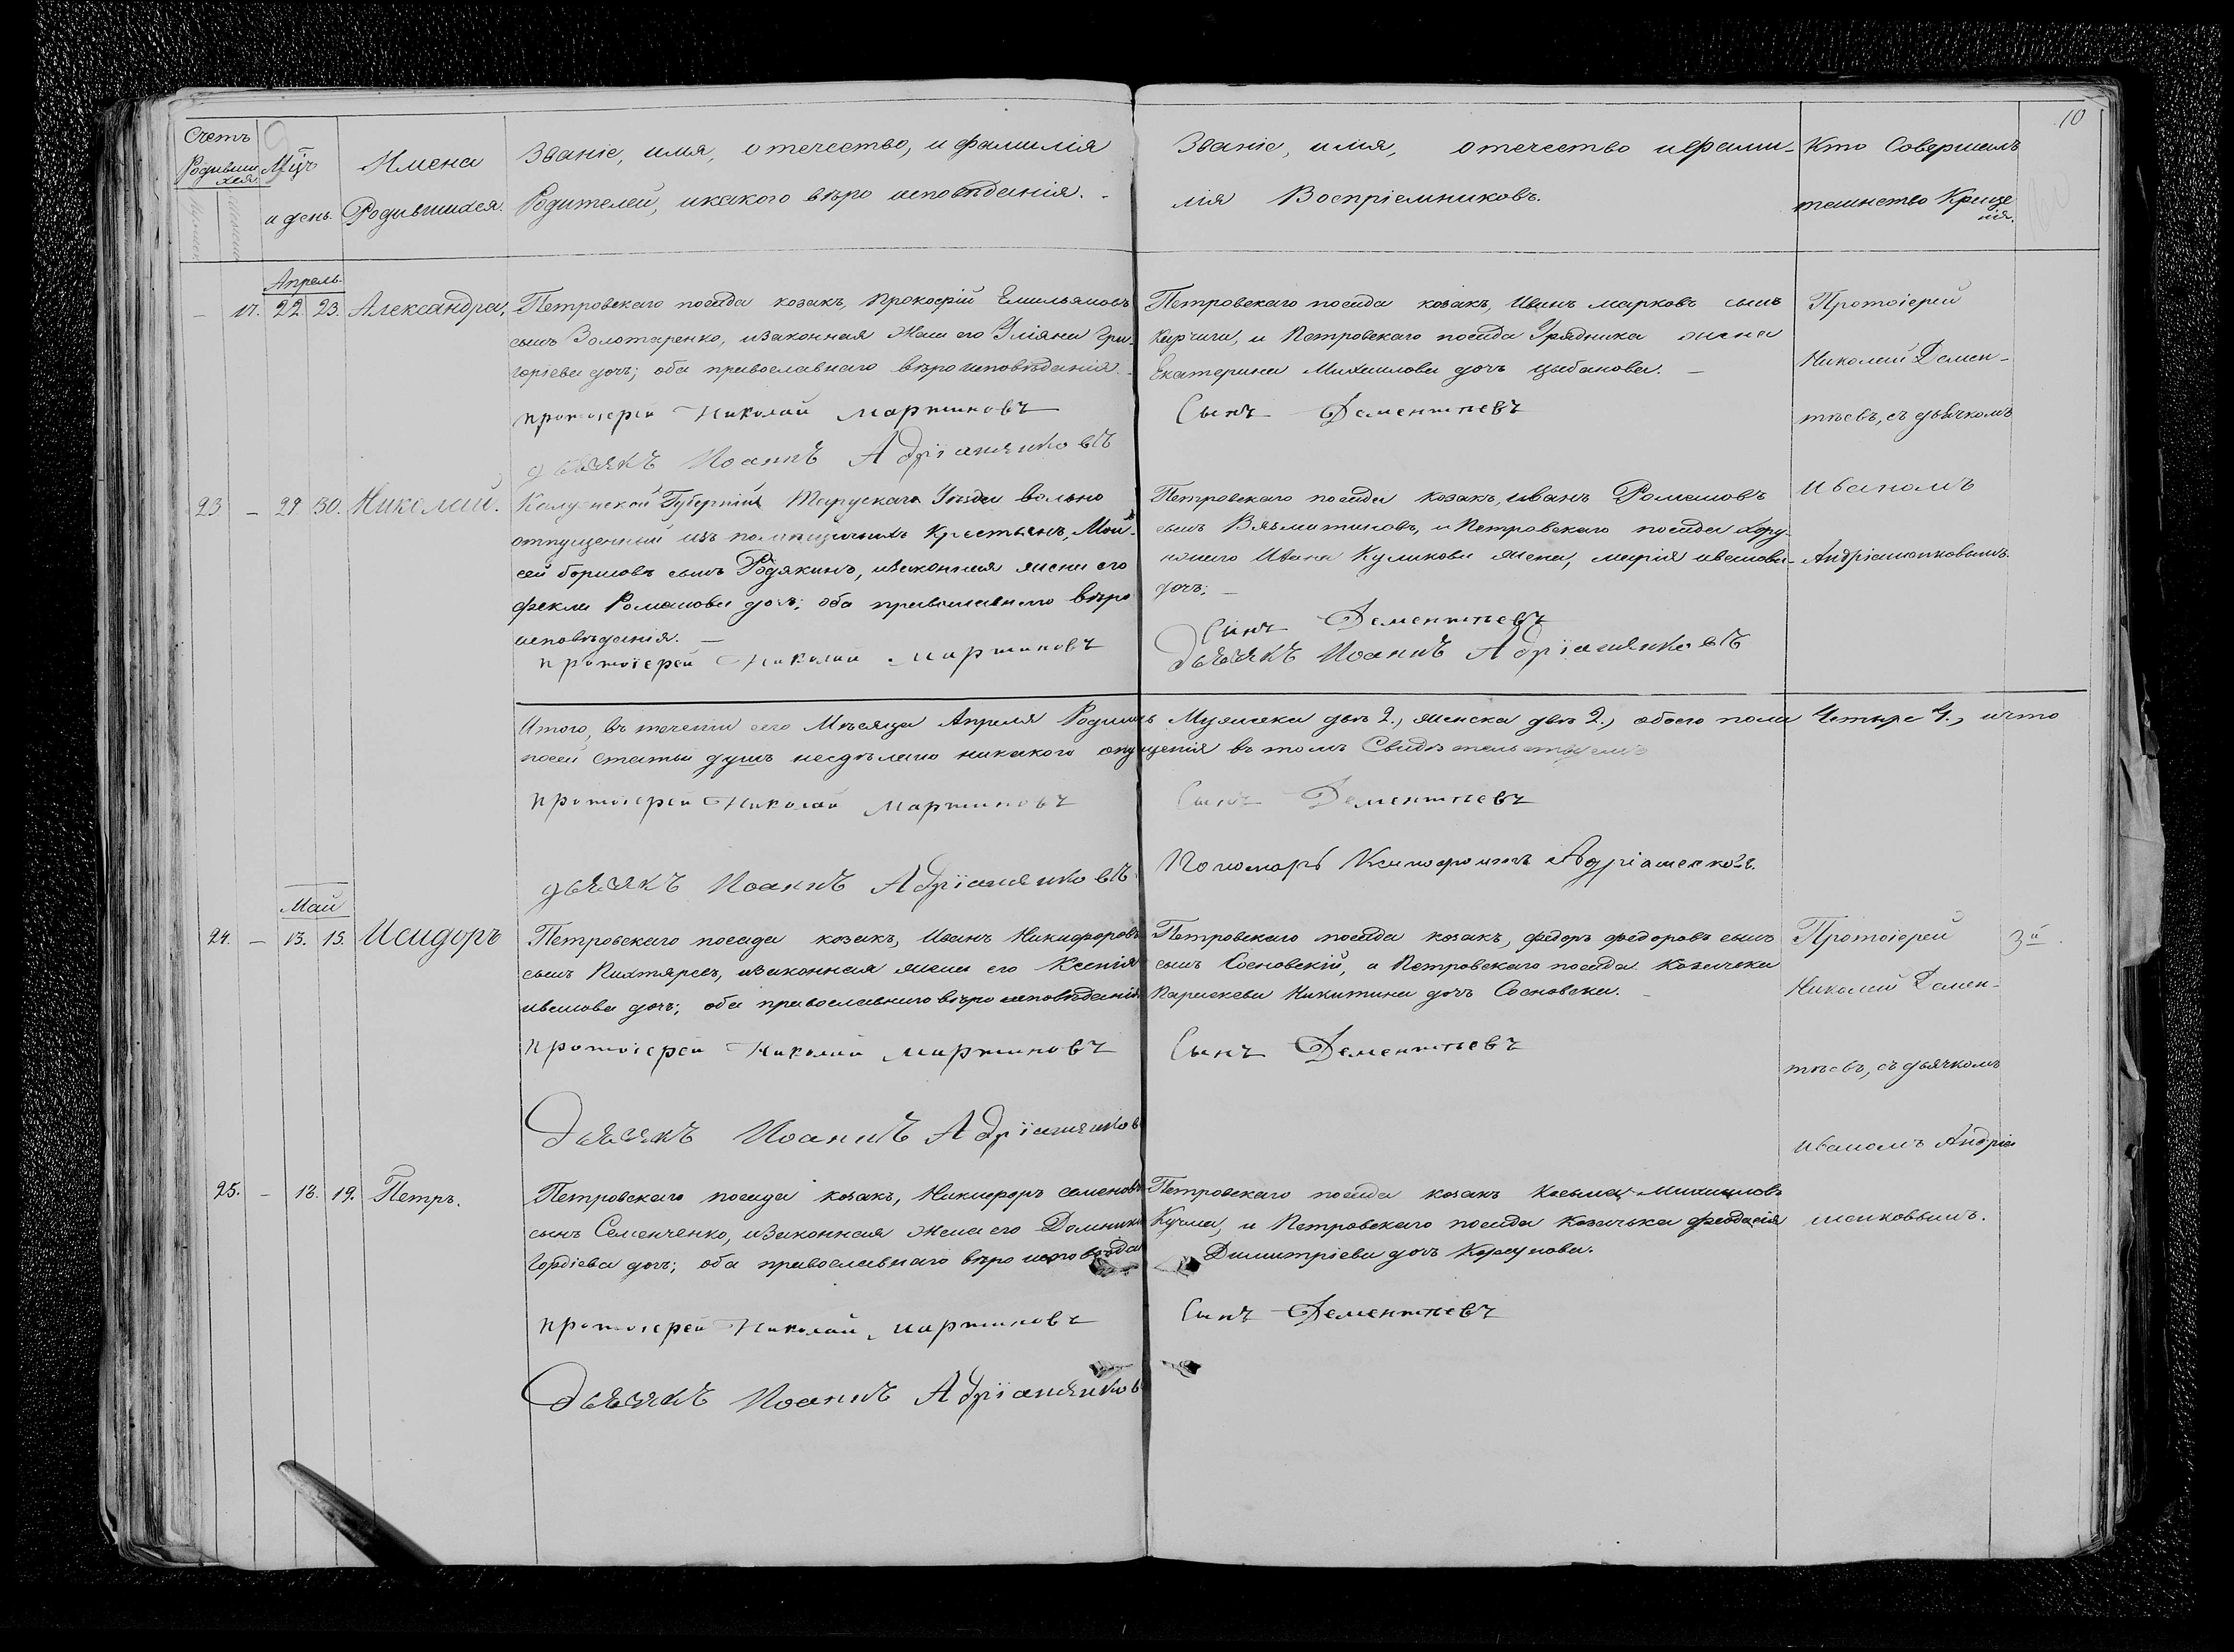 10
Счетъ
Родивши
хся.
Мцъ
и день.
Имена
Родившихся.
Званіе, имя, отечество, и фамилія
Родителей, икакого вѣро исповѣданія. -
Званіе, имя, отечество ифами-
лія Воспріемниковъ.
Кто Совершалъ
таинство Креще
нія.
Апрель.
— 17. 22. 23. Александра,
Петровскаго посада козакъ, Прокофій Емильяновъ
сынъ Золотаренко, изаконная жена его Уліяна Гри-
горіева дочь; оба православнаго вѣро исповѣданія. -
протоіерей Николай мартиновъ
дьячекъ Иоаннъ Адріаненковъ
Петровскаго посада козакъ, Иванъ марковъ сынъ
Кирчига, и Петровскаго посада Урядника жена
Екатерина Михаилова дочь цыбанова. —
Сынъ Дементпевъ
Протоіерей
Николай Демен-
тьевъ, съ дьячкомъ
Иваномъ
Андріяшенковымъ
23 — 29. 30. Николай.
Калужской Губерніи Тарускаго Уѣзда вольно
отпущенный изъ помѣщичьихъ Крестьянъ, Мои-
сей борисовъ сынъ Родякинъ, изаконная жена его
фекла Романова дочь; оба православнаго вѣро
исповѣданія. —
протоіерей Николай мартиновъ
Петровскаго посада козакъ, иванъ Романовъ
сынъ Вязмитиновъ, и Петровскаго посада хору-
нжаго Ивана Куликова жена, марія иванова
дочь; —
Сынъ Дементпевъ
Дьячекъ Иоаннъ Адріаненковъ
Итого, въ теченіи сего Мѣсяца Апреля Родилось Мужеска двѣ 2., женска двѣ 2., обоего пола Четыре 4., ичто
посей статьи душъ несдѣлано никакого опущенія въ томъ Свидѣтельствуемъ
протоіерей Николай мартиновъ
Сынъ Дементпевъ
дьячекъ Иоаннъ Адріаненковъ
Пономарь Ксинофонтъ Адріаненковъ.
Май
24. — 13. 15. Исидоръ
Петровскаго посада козакъ, Иванъ Никифоровъ
сынъ Пихтяревъ, изаконная жена его Ксенія
иванова дочь; оба православнаго вѣро исповѣданія
протоіерей Николай мартиновъ
Дьячекъ Иоаннъ Адріаненков
Петровскаго посада козакъ, федоръ федоровъ сынъ
сынъ Сосновскій, и Петровскаго посада Козачка
Параскева Никитина дочь Сосновска. -
Сынъ Дементпевъ
Протоіерей
3й.
Николай Демен-
тьевъ, съ дьячкомъ
Иваномъ Андрія
шенковымъ.
25. — 18. 19. Петръ.
Петровскаго посада козакъ, Никифоръ семеновъ
сынъ Семенченко, изаконная жена его Домникія
Гордіева дочь; оба православнаго вѣро исповѣда
протоіерей Николай мартиновъ
Дьячекъ Иоаннъ Адріаненков
Петровскаго посада козакъ Косьма Михаиловъ
Кучма, и Петровскаго посада Козачька феодосія
Димитріева дочь Корсунова.
Сынъ Дементпевъ